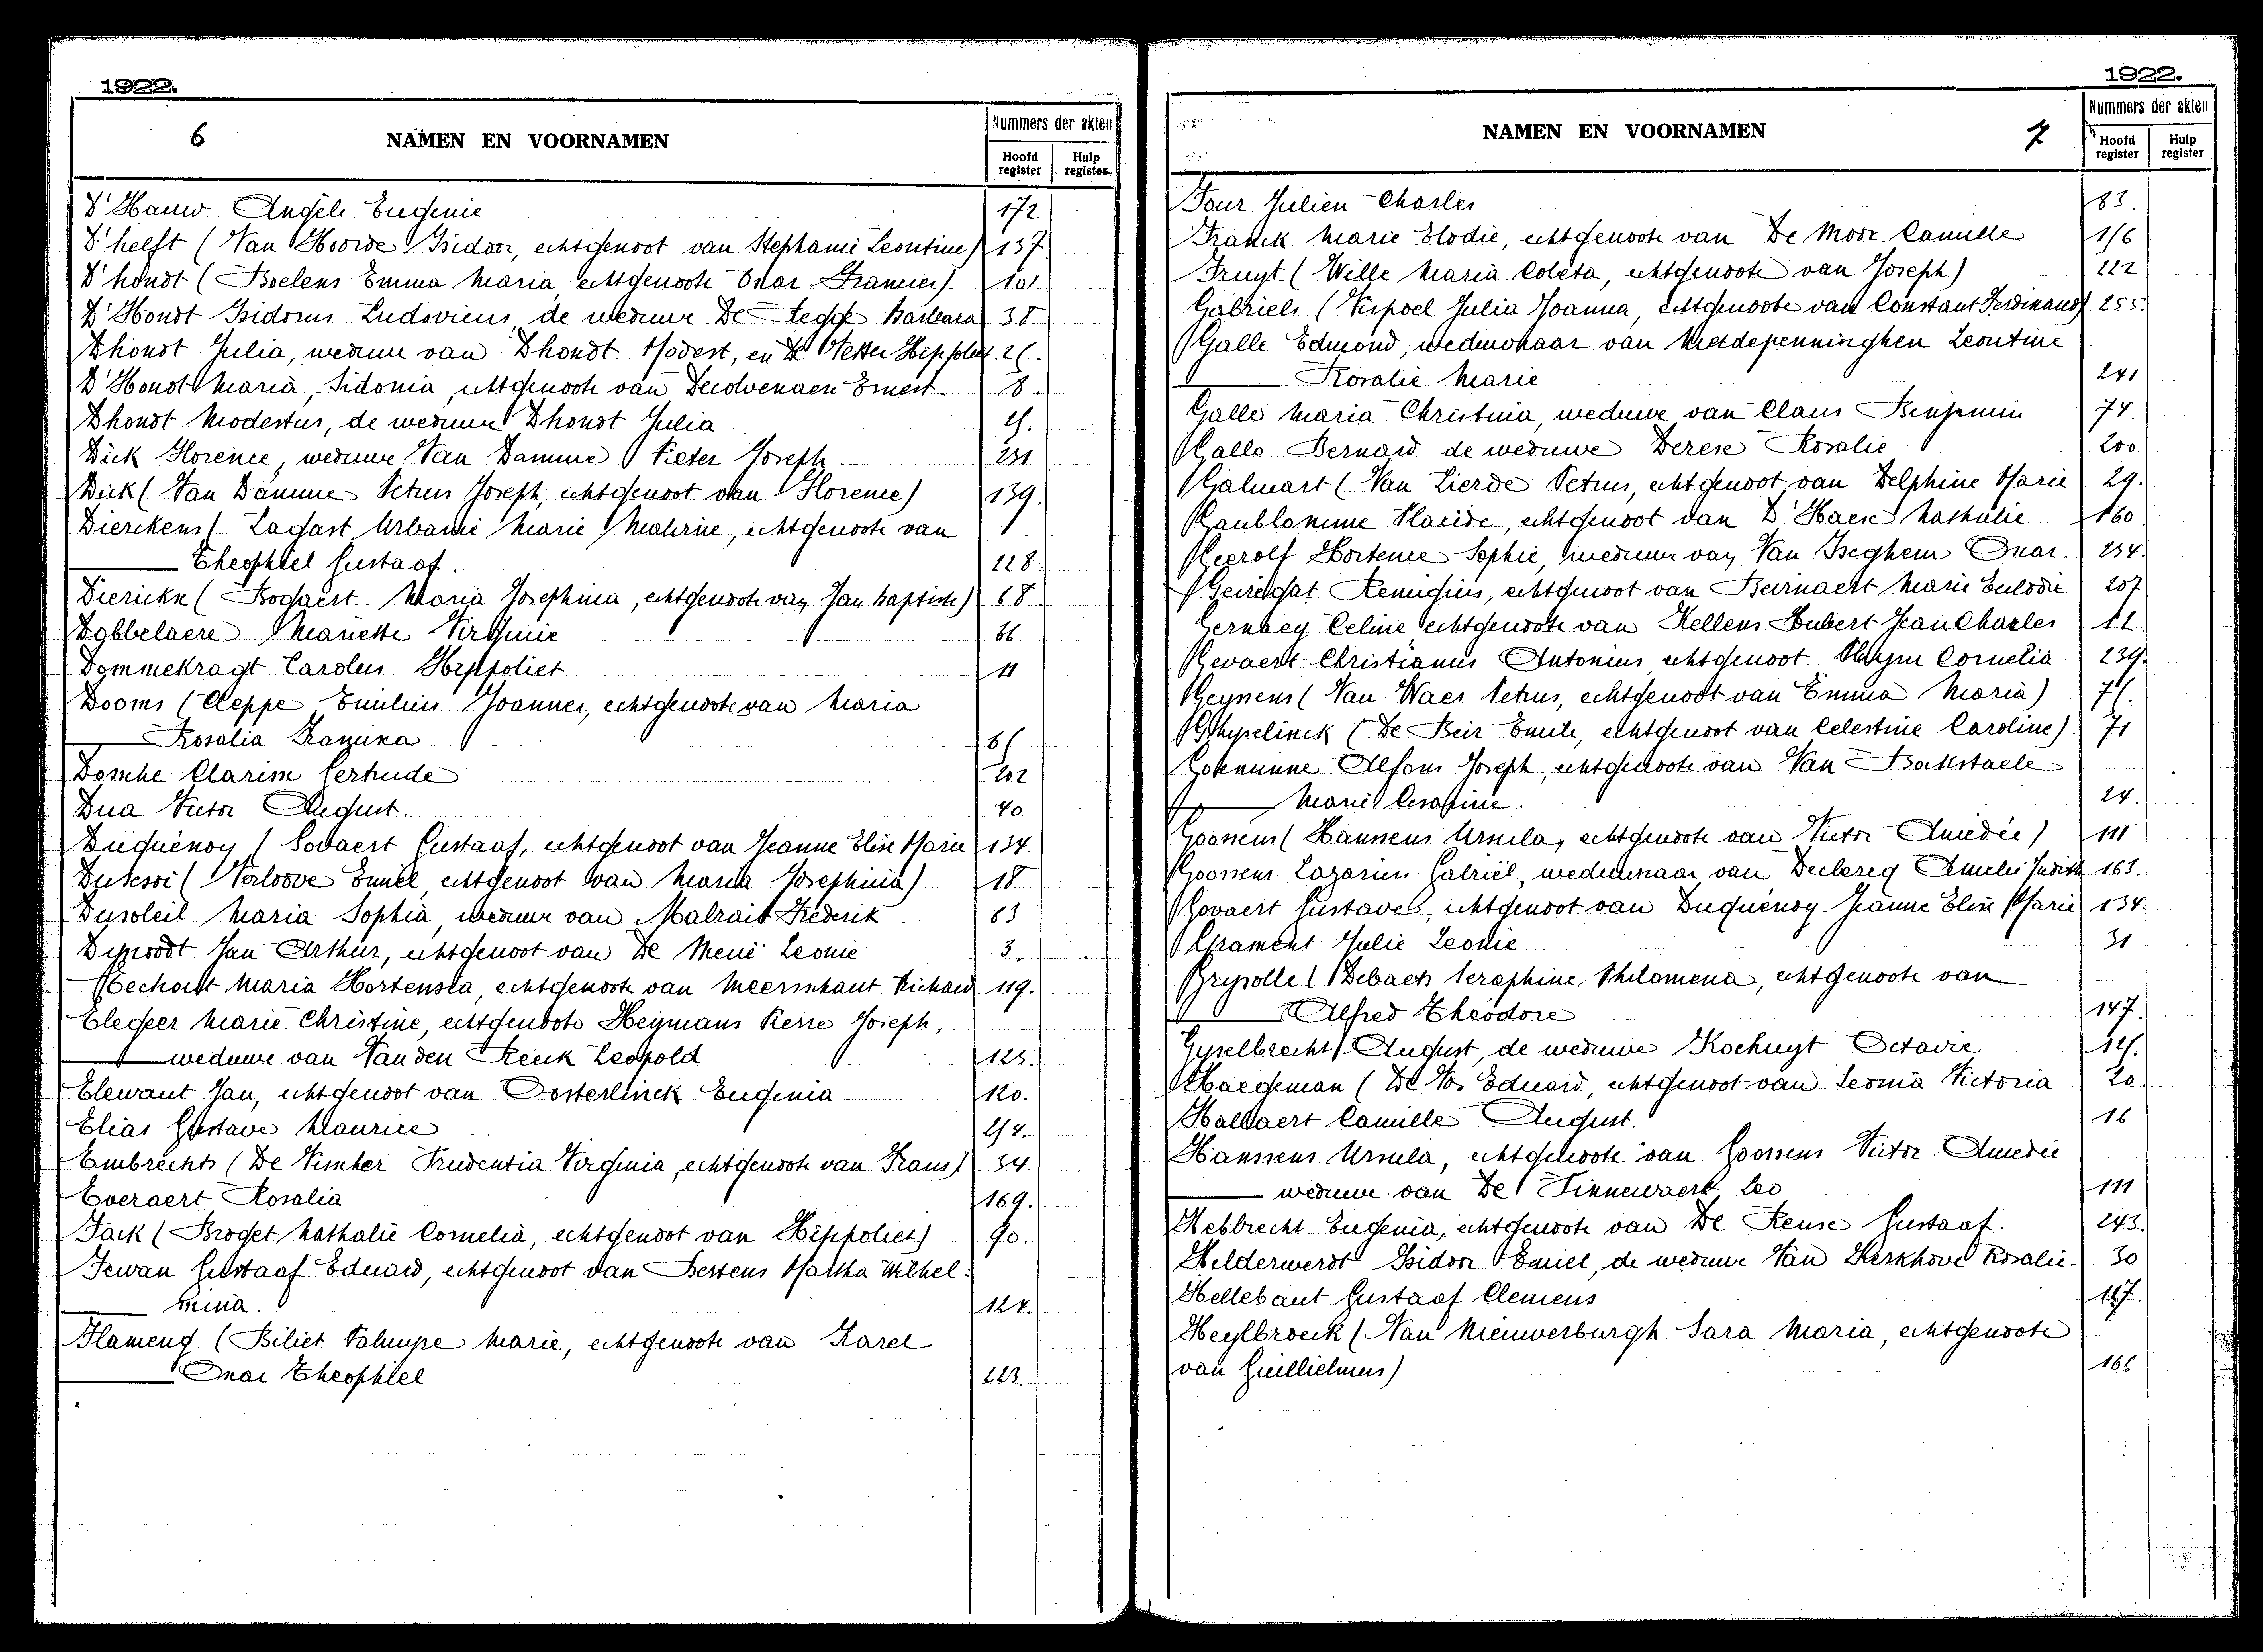 1922.
6 NAMEN EN VOORNAMEN Nummers der akten
Hoofd register Hulp register
D'Hauw Angèle Eugenie 172
D'helft (Van Hoorde Isidoor, echtgenoot van Stephanie Leontine) 137
D'hondt (Boelens Emma Maria echtgenoote Omar Francies) 101
D'Hondt Isidorus Ludovicus, de weduwe De Barbara 38
Dhondt Julia, weduwe van Dhondt Modest, en De Hippoliet
D'Hondt Maria, Sidonia, echtgenoote van Ernest. 8.
Dhondt Modestus, de weduwe Dhondt Julia
Dick Florence, weduwe Van Damme Pieter Joseph 231
Dick (Van Damme Petrus Joseph, echtgenoot van Florence) 139.
Dierckens (Lagast Urbanie Marie, echtgenoote van
Theophiel Gustaaf. 228.
Dierickx (Bogaert Maria Josephina, echtgenoote van Jan Baptiste) 68
Dobbelaere Mariette Virginie 66
Dommekragt Carolus Hyppoliet 11
Dooms (Cleppe Emilius Joannes, echtgenoote van Maria
Rosalia
Dossche Clarisse Gertrude 202
Dua Victor August. 40
Duquénoy (Govaert Gustaaf, echtgenoot van Jeanne Elise Marie 134.
(Verloove Emiel echtgenoot van Maria Josephina) 18
Dusoleil Maria Sophia, weduwe van Malrait Frederik 63
Jan Arthur, echtgenoot van De Leonie 3.
Eechout Maria Hortensia, echtgenoote van Meerschaut Richard 119.
Elegeer Marie Christine, echtgenoote Heymans Pierre Joseph,
weduwe van Van den Leopold 123.
Elewaut Jan, echtgenoot van Oosterlinck Eugenia 120.
Elias Gustave Maurice
Embrechts (De Vischer Prudentia Virginia, echtgenoote van Frans) 34.
Everaert Rosalia 169.
Fack (Broget Nathalie Cornelia, echtgenoot van Hippoliet) 90.
Fewan Gustaaf Eduard, echtgenoot van Bertens Martha Wilhel-
mina. 124.
Flameng (Biliet Marie, echtgenoote van Karel
Omar Theophiel 223.
1922.
NAMEN EN VOORNAMEN 7 Nummers der akten
Hoofd register Hulp register
Four Julien Charles 83.
Franck Marie Elodie, echtgenoote van De Moor Camille
Fruyt (Wille Maria Coleta, echtgenoote van Joseph) 222
Gabriels (Vispoel Julia Joanna, echtgenoote van Constant Ferdinand) 255.
Galle Edmond, weduwnaar van Meldepenninghen Leontine
Rosalie Marie 241
Galle Maria Christina, weduwe van Claus Benjamin 74.
Gallo Bernard de weduwe Derese Rosalie 200
Galmart (Van Lierde Petrus, echtgenoot van Delphine Marie 29.
Gaublomme Placide, echtgenoot van D'Haese Nathalie 160
Geerolf Hortense Sophie, weduwe van Van Iseghem Omar. 234.
Geiregat Remigius, echtgenoot van Beirnaert Marie Eulodie 207
Gernaey Celine echtgenoote van Kellens Hubert Jean Charles 12
Gevaert Christianus Antonius echtgenoot Cornelia 239.
Geysens (Van Waes Petrus, echtgenoot van Emma Maria)
Ghyselinck (De Beir Emile, echtgenoot van Celestine Caroline) 71
Alfons Joseph, echtgenoote van Van Bockstaele
Marie Cesarine. 24.
Goossens (Hanssens Ursula, echtgenoote van Victor Amedée) 111
Goossens Lazarius Gabriël, weduwnaar van Declercq Amelie Judith 163.
Govaert Gustave, echtgenoot van Duquénoy Jeanne Elise Marie 134.
Grament Julie Leonie 31
Grysolle (Debaets Seraphine Philomena, echtgenoote van
Alfred Théodore 147.
Gyselbrecht August, de weduwe Kochuyt Octavie
Haegeman (De Vos Eduard, echtgenoot van Leonia Victoria 20.
Hallaert Camille August. 16
Hanssens Ursula, echtgenoote van Goossens Victor Amedée
weduwe van De Leo 111
Hebbrecht Eugenia, echtgenoote van De Reuse Gustaaf. 243.
Helderwerdt Isidoor Emiel, de weduwe Van Kerkhove Rosalie 30
Hellebaut Gustaaf Clemens
Heylbroeck (Van Nieuwerburgh Sara Maria, echtgenoote
van Guillielmus) 166